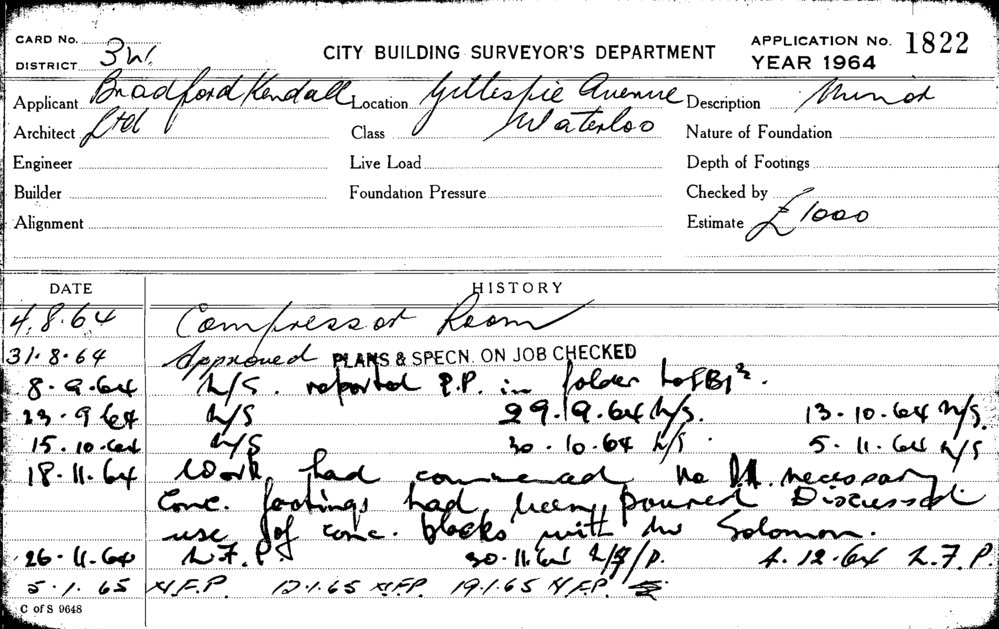 CARD No. CITY BUILDING SURVEYOR'S DEPARTMENT APPLICATION No. 1822
DISTRICT 3W. YEAR 1964
Applicant Bradford Kendall Location Gillespie Avenue Description Minor
Architect Ltd Class Waterloo Nature of Foundation
Engineer Live Load Depth of Footings
Builder Foundation Pressure Checked by
Alignment Estimate £1000
DATE HISTORY
4.8.64 Compressor Room
31.8.64 Approved PLANS & SPECN. ON JOB CHECKED
8.9.64 N/S. reported P.P. in folder
23.9.64 N/S 29.9.64 N/S. 13.10.64 N/S.
15.10.64 N/S 30.10.64 N/S. 5.11.64 N/S
18.11.64 Work had commenced No necessary
Conc. footings had been poured Discussed
use of conc. blocks with Mr Solomon.
26.11.64 N.F.P. 30.11.64 N/F/P. 4.12.64 N.F.P.
5.1.65 N.F.P. 12.1.65 N.F.P. 19.1.65 N.F.P.
C of S 9648